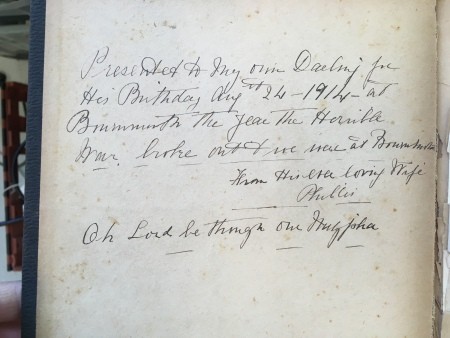 Presented to My own Darling for
His Birthday Aug st 24 - 1914 - at
Bournmouth the year the Horrible
War. broke out & we were at Bournmouth
From His ever loving Wife
Phillis
Oh Lord be though our